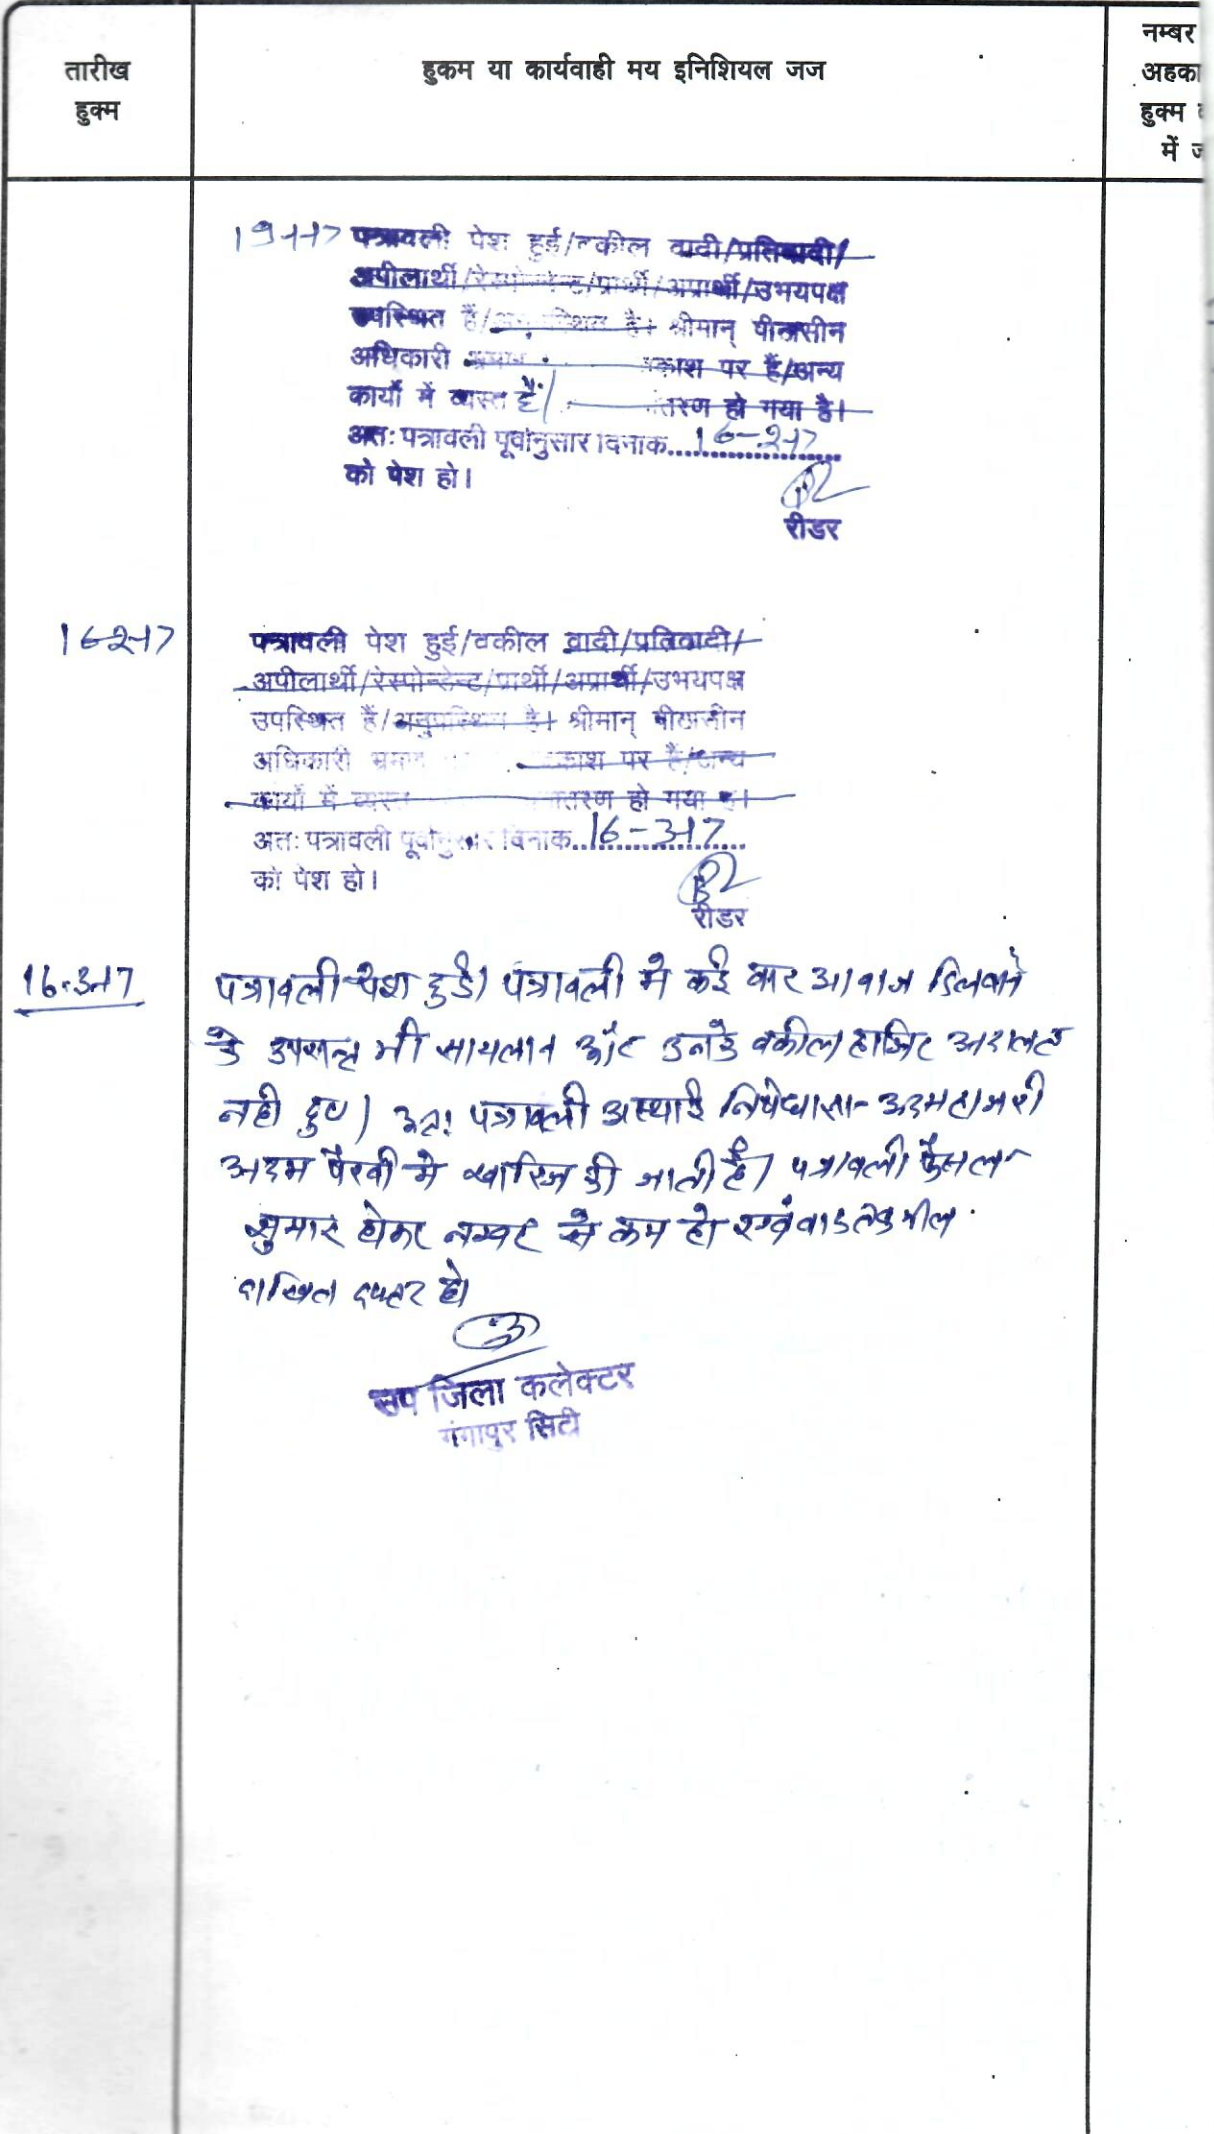 तारीख
हुक्म
हुकम या कार्यवाही मय इनिशियल जज
नम्बर
अहका
हुक्म
में ज
19-1-17 पत्रावली पेश हुई/वकील वादी/प्रतिवादी/
अपीलार्थी/रेस्पोन्डेन्ट/प्रार्थी/अप्रार्थी/उभयपक्ष
उपस्थित हैं/अनुपस्थित है। श्रीमान् पीठासीन
अधिकारी भ्रमण काश पर हैं/अन्य
कार्यो में व्यस्त हैं/ तरण हो गया है।
अतः पत्रावली पूर्वानुसार दिनाक 16-2-17
को पेश हो।
रीडर
16-2-17
पत्रावली पेश हुई/वकील वादी/प्रतिवादी/
अपीलार्थी/रेस्पोन्डेन्ट/प्रार्थी/अप्रार्थी/उभयपक्ष
उपस्थित हैं/अनुपस्थित है। श्रीमान् पीठासीन
अधिकारी भ्रमण काश पर हैं/अन्य
कार्यो में व्यस्त तरण हो गया है।
अतः पत्रावली पूर्वानुसार दिनाक 16-3-17
को पेश हो।
रीडर
16-3-17
पत्रावली पेश हुई। पत्रावली मे कई बार आवाज दिलवाने
के उपरान्त भी सायलान और उनके वकील हाजिर अदालत
नही हुए। अतः पत्रावली अस्थाई निषेधाज्ञा अदमहाजरी
अदम पैरवी मे खारिज की जाती है। पत्रावली फैसल
सुमार होकर नम्बर से कम हो एवं बाद तकमील
दाखिल दफ्तर हो।
उप जिला कलेक्टर
गंगापुर सिटी